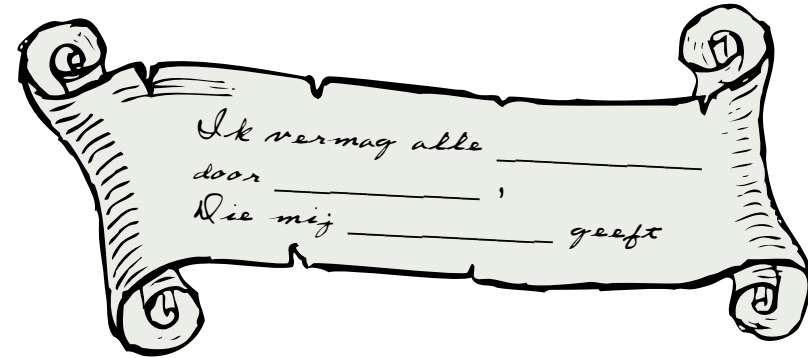 Ik vermag alle _______________
door _______________ ,
Die mij _______________ geeft